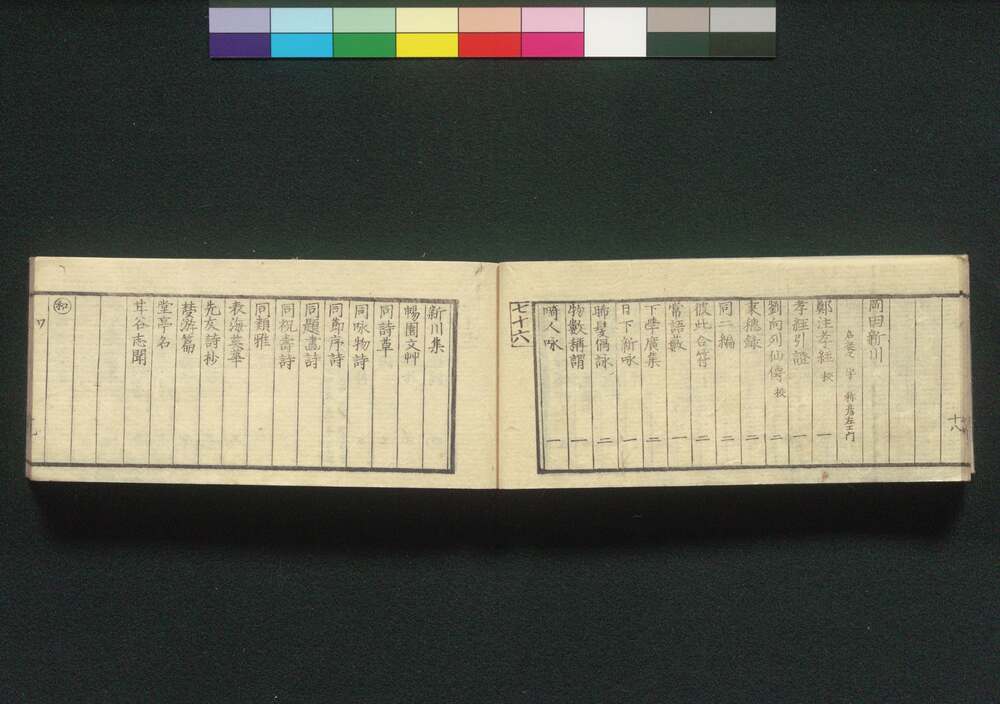 十八
岡田新川
名 字 称彦左エ門
鄭注孝経 校 一
孝経引證 一
劉向列仙傳 校 二
秉穂録 二
同二編 二
彼此合符 二
常語藪 一
下学廣集 二
日下新咏 一
晞髪偶詠 二
物數稱謂 一
畸人咏 一
七十六
新川集
暢園文艸
同詩草
同咏物詩
同節序詩
同題畫詩
同祝壽詩
同類雅
表海英華
先友詩抄
楚游篇
堂亭名
甘谷志聞
和
ワ